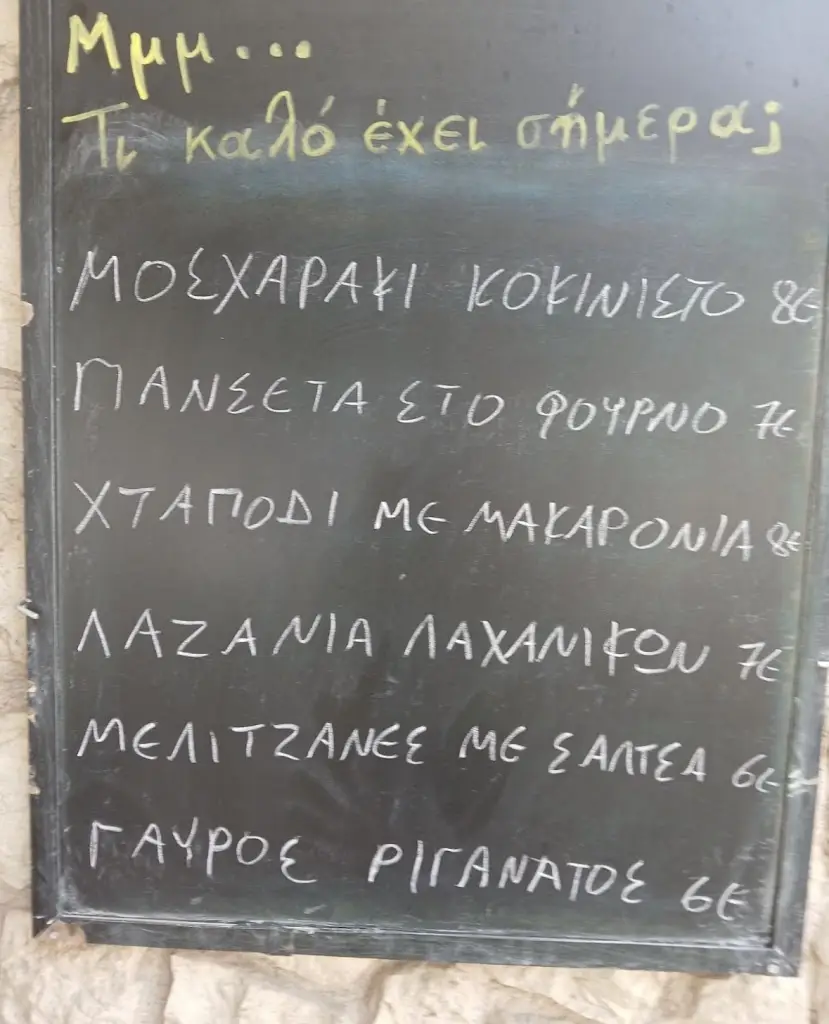 Μμμ...
Τι καλό έχει σήμερα;
ΜΟΣΧΑΡΑΚΙ ΚΟΚΙΝΙΣΤΟ 8€
ΠΑΝΣΕΤΑ ΣΤΟ ΦΟΥΡΝΟ 7€
ΧΤΑΠΟΔΙ ΜΕ ΜΑΚΑΡΟΝΙΑ 8€
ΛΑΖΑΝΙΑ ΛΑΧΑΝΙΚΩΝ 7€
ΜΕΛΙΤΖΑΝΕΣ ΜΕ ΣΑΛΤΣΑ 6€
ΓΑΥΡΟΣ ΡΙΓΑΝΑΤΟΣ 6€